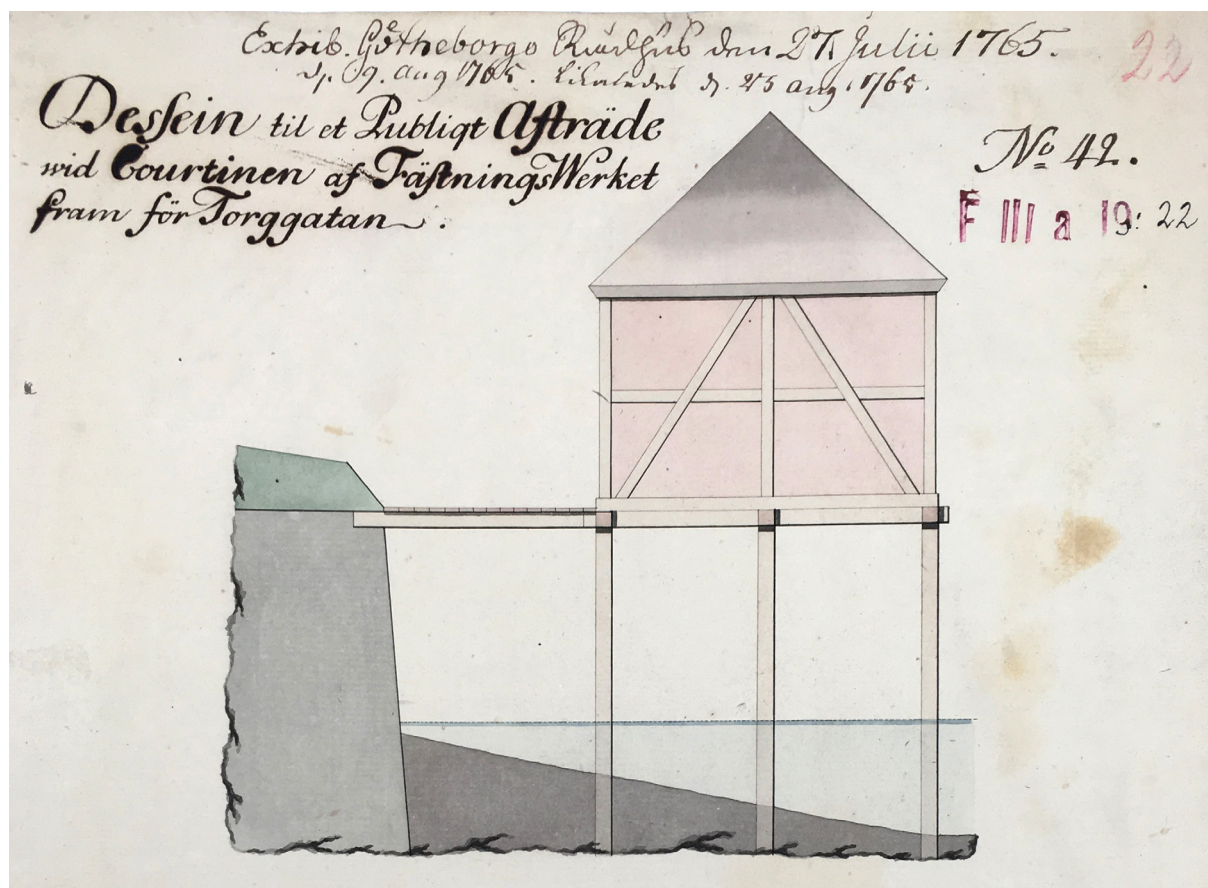 Exhib. Götheborgs Rådhus den 27 Julii 1765.
d. 9. aug 1765. d. 23 aug. 1765.
Dessein til et Publiqt Afträde
wid Courtinen af FästningsWerket
fram för Torggatan.
22
No 42.
F III a 19: 22